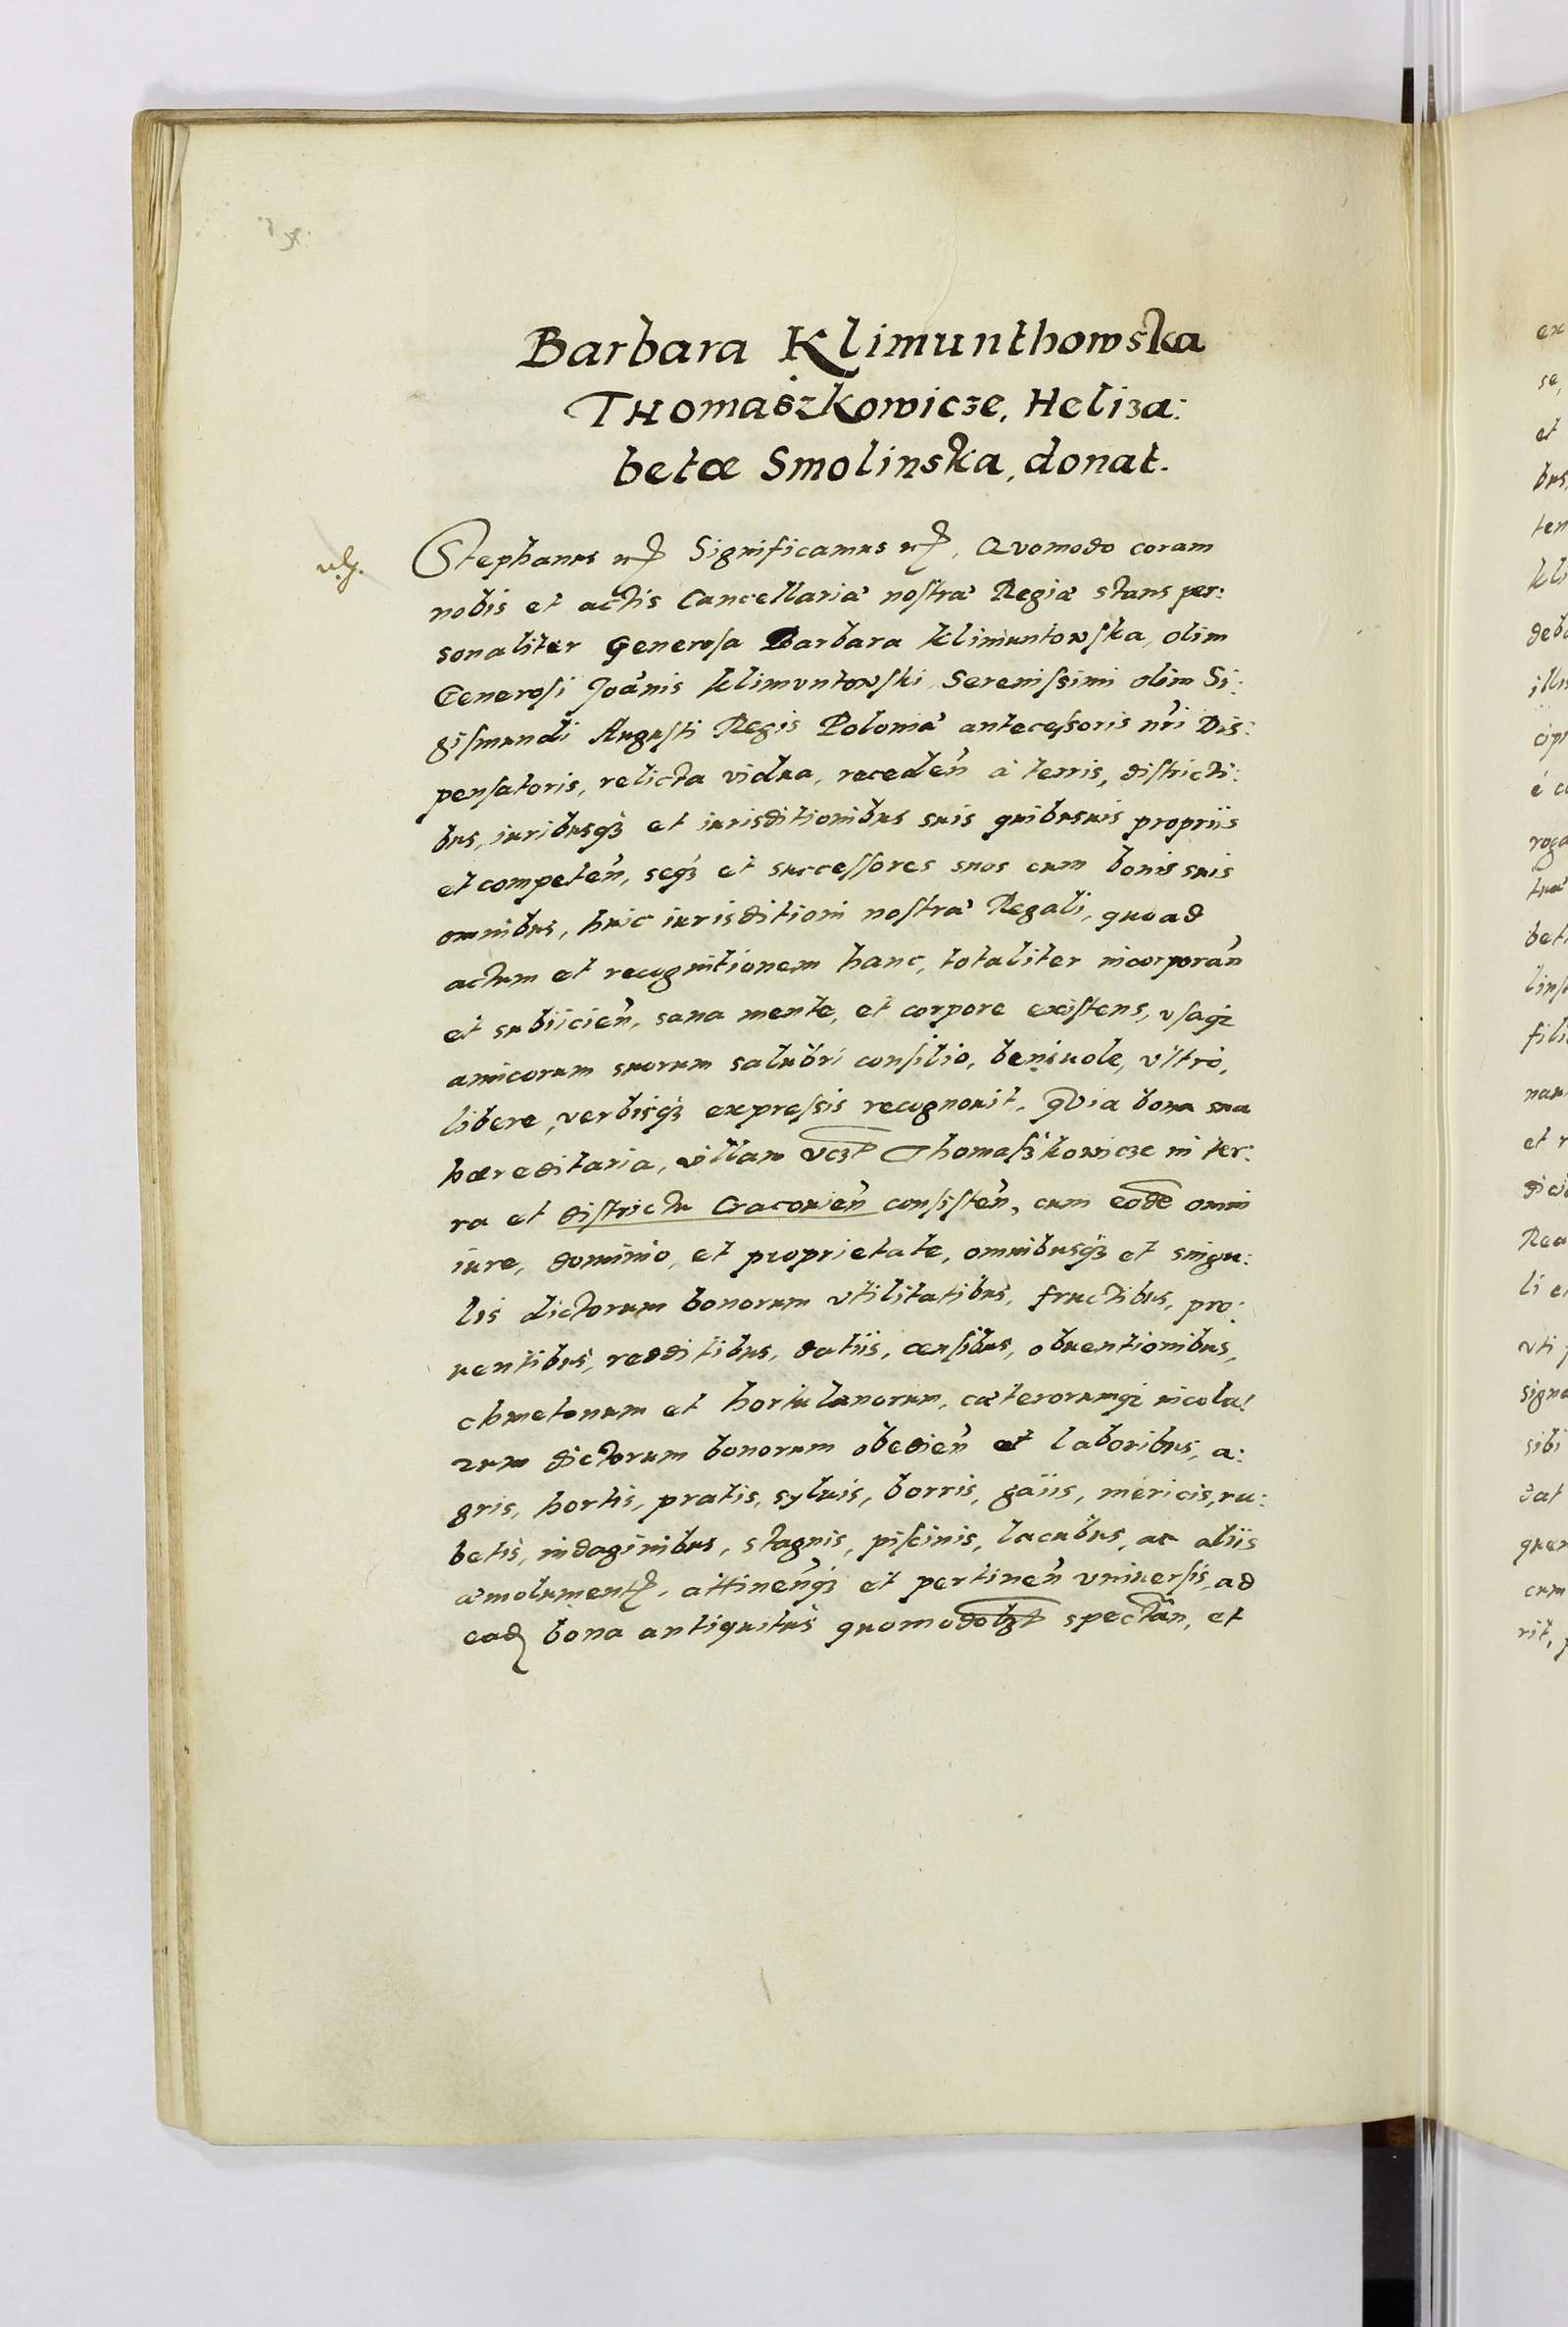 Barbara Klimunthowska
THomaszkowicze, Heliza:
betæ Smolinska, donat.
Stephanus Significamus Qvomodo coram
nobis et actis Cancellariæ nostræ Regiæ stans per:
sonaliter Generosa Barbara Klimuntowska, olim
Generosi Joãnis Klimvntowski Serenissimi olim Si:
gismundi Augusti Regis Poloniæ antecessoris nri Dis:
pensatoris, relicta vidua, receden à terris, districti:
bus, iuribusq3 et iurisditionibus suis quibusuis propriis
et competen, seq3 et successores suos cum bonis suis
omnibus, huic iurisditioni nostræ Regali, quoad
actum et recognitionem hanc, totaliter incorporan
et subiicien, sana mente, et corpore existens, vsaq3
amicorum suorum salubri consilio, beniuole, vltrò,
libere, verbisq3 expressis recognouit. Qvia bona sua
hæreditaria, villam vczt Thomaszkowicze in ter:
ra et districtu Cracouien consisten, cum eode omni
iure, dominio, et proprietate, omnibusq3 et singu:
lis dictorum bonorum vtilitatibus, fructibus, pro:
uentibus, redditibus, datiis, censibus, obuentionibus,
chmetonum et hortulanorum, cæterorumq3 incola:
rum dictorum bonorum obedien et laboribus, a:
gris, hortis, pratis, syluis, borris, gaiis, mericis, ru:
betis, indaginibus, stagnis, piscinis, lacubus, ac aliis
æmolument, attinenq3 et pertinen vniuersis, ad
ead bona antiquitùs quomodolzt spectan, et
ex
se,
et
bus
ten
kli
deb
illu
cip
é c
roga
tuæ
bet
lins
fili
nan
et r
dici
Rea
li e
vti
signa
sibi
dat
quen
cum
rit,